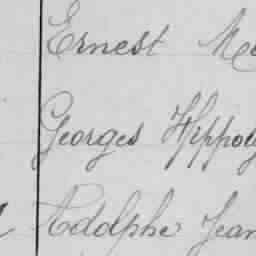 Ernest
Georges Hippoly
Adolphe Jean